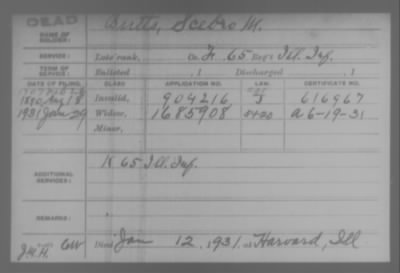 DEAD
NAME OF SOLDIER:
Butts, Scebro M.
SERVICE:
Late rank, Co. F. 65 Reg't Ill. Inf.
TERM OF SERVICE:
Enlisted , 1 Discharged , 1
DATE OF FILING. CLASS. APPLICATION NO. LAW. CERTIFICATE NO.
1890 Aug 18 Invalid, 904216 J 616967
1931 Jan 29 Widow, 1685908 A 6-19-31
Minor,
ADDITIONAL SERVICES:
K 65 Ill. Inf.
REMARKS:
Died Jan 12, 1931, at Harvard, Ill